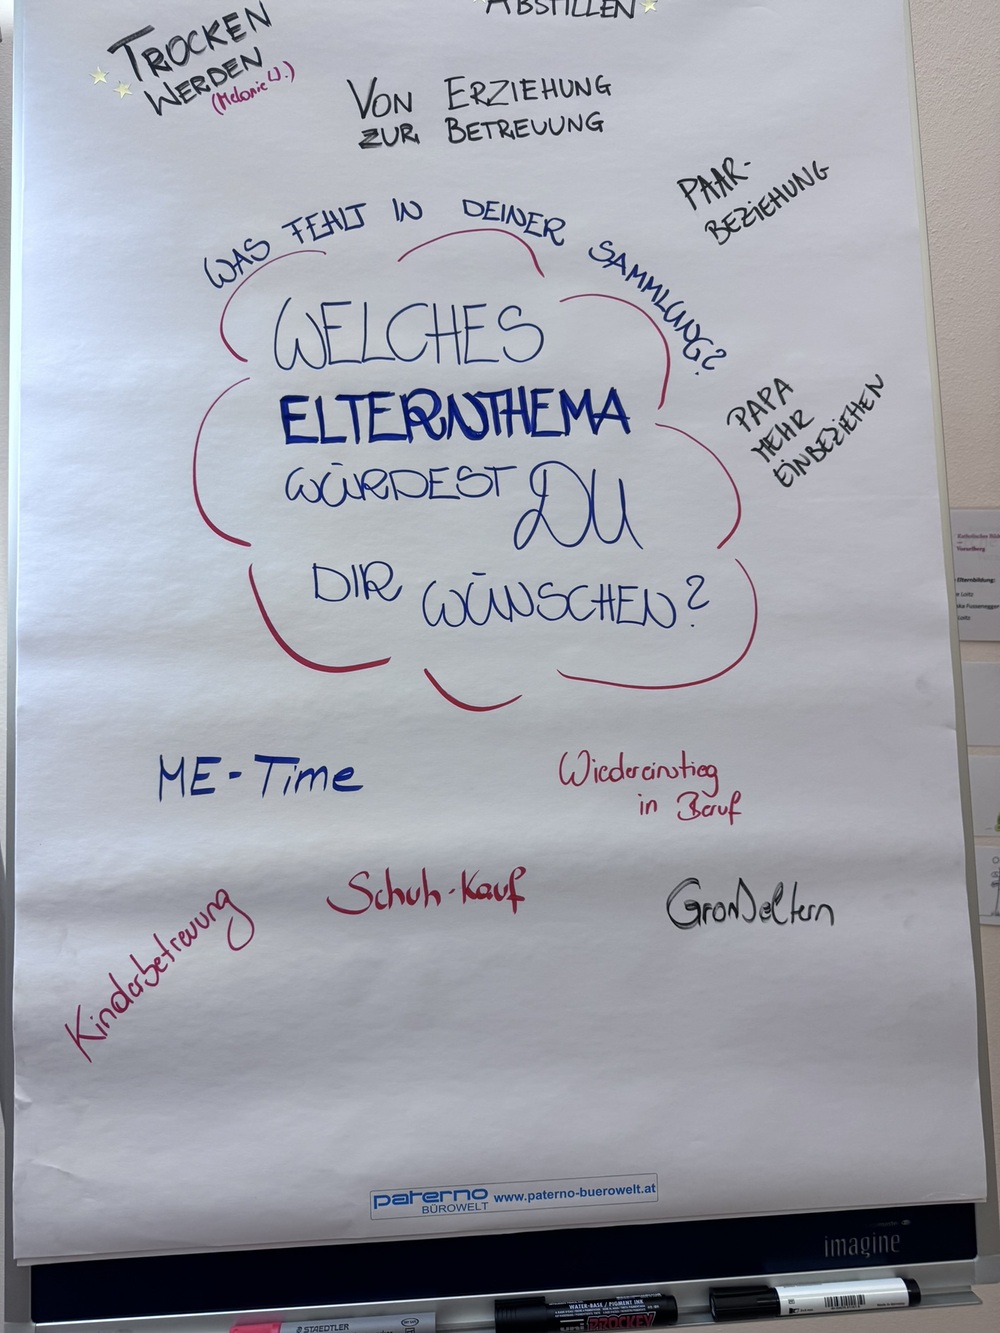 ABSTILLEN
TROCKEN
WERDEN
VON ERZIEHUNG
ZUR BETREUUNG
PAAR-
BEZIEHUNG
WAS FEHLT IN DEINER SAMMLUNG?
WELCHES
ELTERNTHEMA
WÜRDEST DU
DIR WÜNSCHEN?
PAPA
MEHR
EINBEZIEHEN
ME-Time
Wiedereinstieg
in Beruf
Schuh-Kauf
Großeltern
Kinderbetreuung
paterno
BÜROWELT
www.paterno-buerowelt.at
imagine
STAEDTLER
WATER-BASE / PIGMENT INK
PROCKEY
Elternbildung: